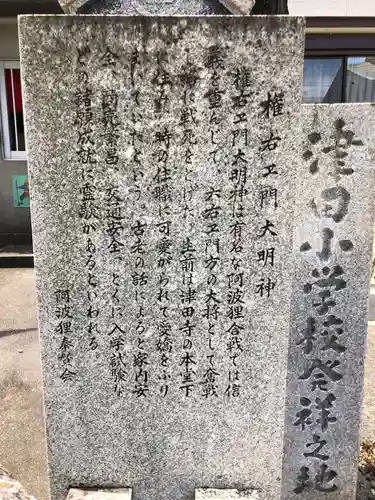 権右エ門大明神
権右エ門大明神は有名な阿波狸合戦では信
義を重んじて、六右エ門方の大将として奮戦
し、壮烈に戦死をとげた。生前は津田寺の本堂下
に住み、時の住職に可愛がられて愛嬌をふり
まいていたという。古老の話によると家内安
全、商売繁昌、交通安全、とくに入学試験な
どの諸願成就に霊験があるといわれる
阿波狸奉賛会
津田小学校発祥之地